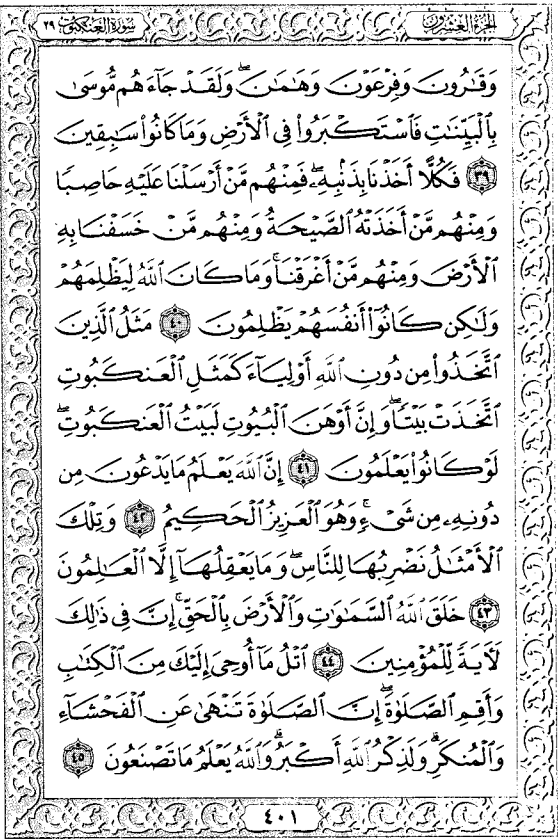 الجزء العشرون
سورة العنكبوت ٢٩
وَقَٰرُونَ وَفِرْعَوْنَ وَهَٰمَٰنَ ۖ وَلَقَدْ جَآءَهُم مُّوسَىٰ
بِٱلْبَيِّنَٰتِ فَٱسْتَكْبَرُوا۟ فِى ٱلْأَرْضِ وَمَا كَانُوا۟ سَٰبِقِينَ
٣٩ فَكُلًّا أَخَذْنَا بِذَنۢبِهِۦ ۖ فَمِنْهُم مَّنْ أَرْسَلْنَا عَلَيْهِ حَاصِبًا
وَمِنْهُم مَّنْ أَخَذَتْهُ ٱلصَّيْحَةُ وَمِنْهُم مَّنْ خَسَفْنَا بِهِ
ٱلْأَرْضَ وَمِنْهُم مَّنْ أَغْرَقْنَا ۚ وَمَا كَانَ ٱللَّهُ لِيَظْلِمَهُمْ
وَلَٰكِن كَانُوٓا۟ أَنفُسَهُمْ يَظْلِمُونَ ٤٠ مَثَلُ ٱلَّذِينَ
ٱتَّخَذُوا۟ مِن دُونِ ٱللَّهِ أَوْلِيَآءَ كَمَثَلِ ٱلْعَنكَبُوتِ
ٱتَّخَذَتْ بَيْتًا ۖ وَإِنَّ أَوْهَنَ ٱلْبُيُوتِ لَبَيْتُ ٱلْعَنكَبُوتِ ۖ
لَوْ كَانُوا۟ يَعْلَمُونَ ٤١ إِنَّ ٱللَّهَ يَعْلَمُ مَا يَدْعُونَ مِن
دُونِهِۦ مِن شَىْءٍ ۚ وَهُوَ ٱلْعَزِيزُ ٱلْحَكِيمُ ٤٢ وَتِلْكَ
ٱلْأَمْثَٰلُ نَضْرِبُهَا لِلنَّاسِ ۖ وَمَا يَعْقِلُهَآ إِلَّا ٱلْعَٰلِمُونَ
٤٣ خَلَقَ ٱللَّهُ ٱلسَّمَٰوَٰتِ وَٱلْأَرْضَ بِٱلْحَقِّ ۚ إِنَّ فِى ذَٰلِكَ
لَءَايَةً لِّلْمُؤْمِنِينَ ٤٤ ٱتْلُ مَآ أُوحِىَ إِلَيْكَ مِنَ ٱلْكِتَٰبِ
وَأَقِمِ ٱلصَّلَوٰةَ ۖ إِنَّ ٱلصَّلَوٰةَ تَنْهَىٰ عَنِ ٱلْفَحْشَآءِ
وَٱلْمُنكَرِ ۗ وَلَذِكْرُ ٱللَّهِ أَكْبَرُ ۗ وَٱللَّهُ يَعْلَمُ مَا تَصْنَعُونَ ٤٥
٤٠١